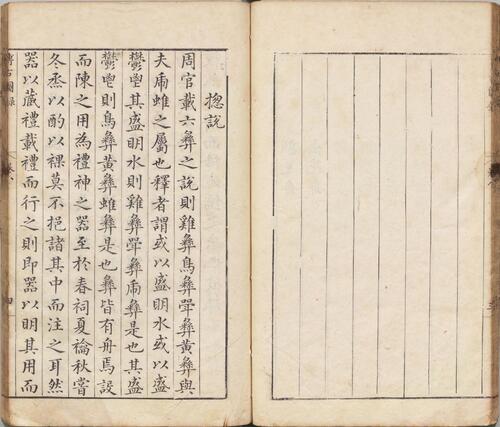 揔說
周官載六彝之說則雞彝鳥彝斝彝黃彝與
夫虎蜼之屬也釋者謂或以盛明水或以盛
鬱鬯其盛明水則雞彝斝彝虎彝是也其盛
鬱鬯則鳥彝黃彝蜼彝是也彝皆有舟焉設
而陳之用為禮神之器至於春祠夏禴秋嘗
冬烝以酌以祼莫不挹諸其中而注之耳然
器以藏禮載禮而行之則即器以明其用而
博古圖錄